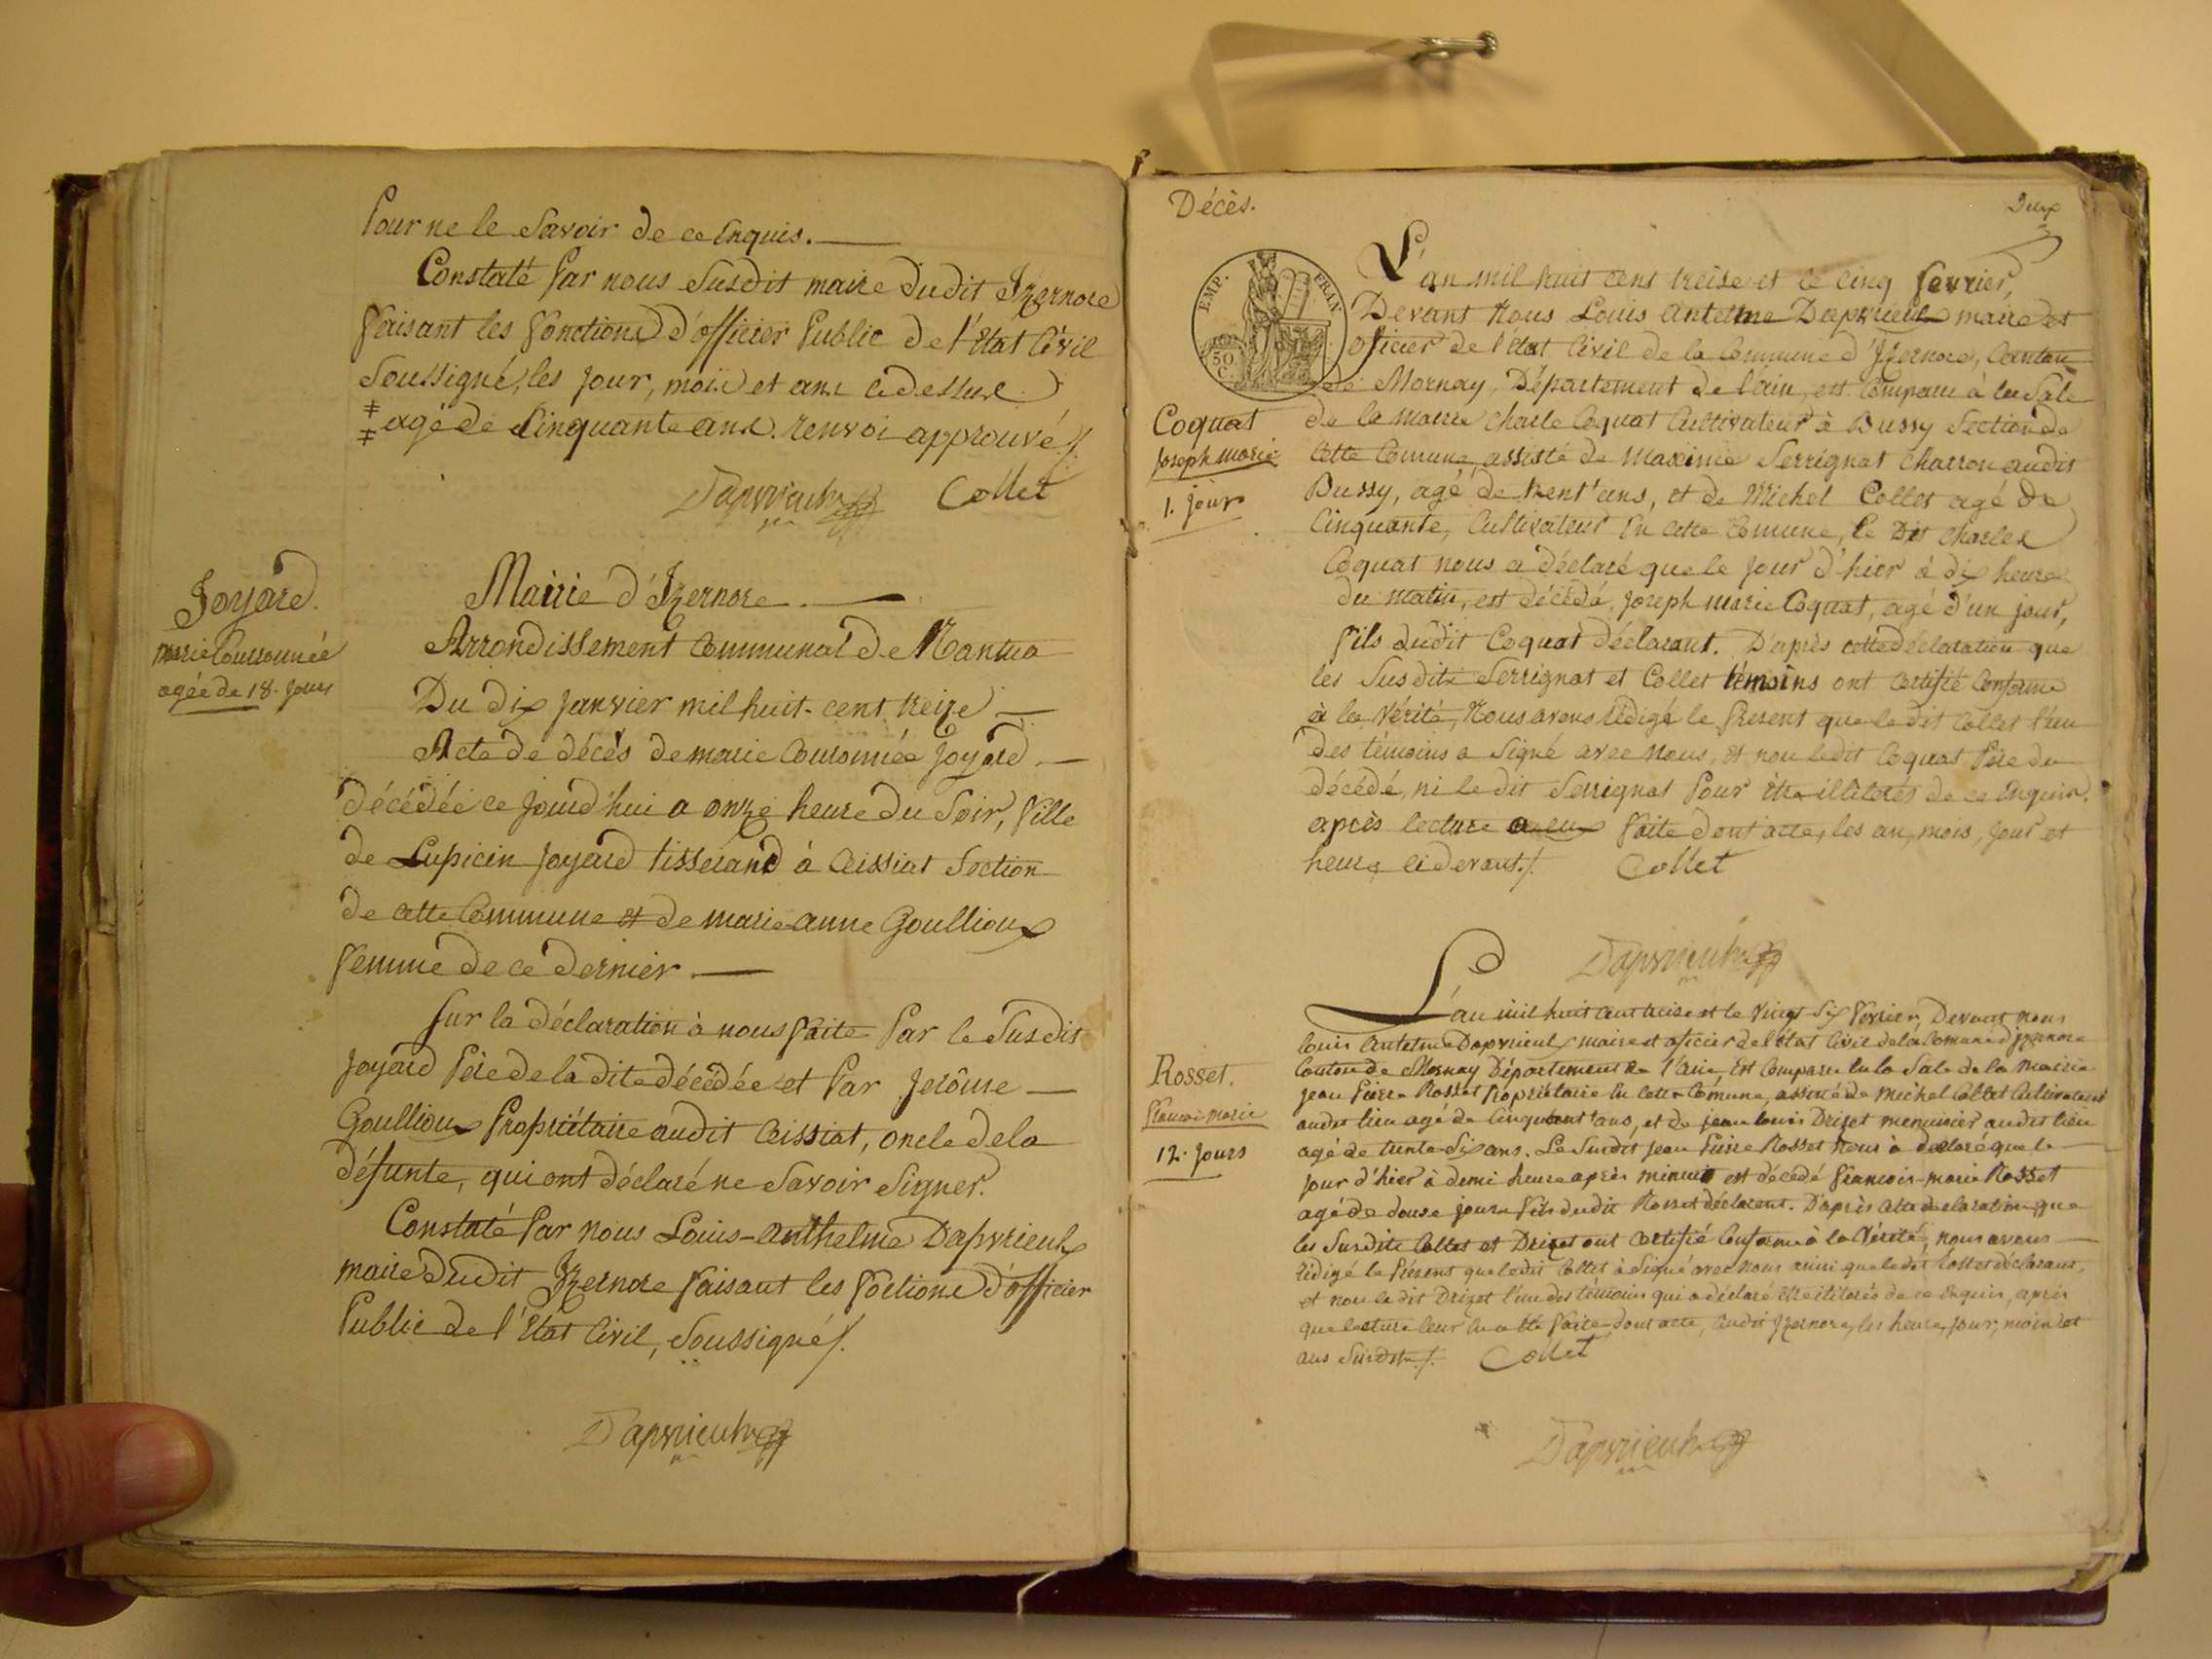 Pour ne le Savoir de ce Enquis.
Constaté Par nous Susdit maire dudit Izernore
Faisant les Fonctions d'officier Public de l'État Civil
Soussigné, les jour, mois et an ci dessus
‡ agé de Cinquante ans. renvoi approuvé ./.
‡
Dapvrieulx Collet
Joyard.
marie Couronnée
agée de 18. jours
Mairie d'Izernore.
Arrondissement Communal de Nantua
Du dix janvier mil huit-cent treize
Acte de décès de marie Couronnée Joyard
décédée ce jourd'hui a onze heure du Soir, Fille
de Lupicin Joyard tisserand à Ceissiat Section
de cette Commune et de marie-anne Goullioux
Femme de ce dernier.
Sur la déclaration à nous Faite Par le Susdit
Joyard Père de la dite décédée et Par Jerôme
Goullioux Propriétaire audit Ceissiat, oncle de la
défunte, qui ont déclaré ne Savoir Signer.
Constaté Par nous Louis-Anthelme Dapvrieulx
maire dudit Izernore Faisant les Foctions d'officier
Public de l'État Civil, Soussigné ./.
Dapvrieulx
Décès.
Deux
EMP. FRAN
50
C.
L'an mil huit cent treise et le cinq Fevrier,
Devant Nous Louis Antelme Dapvrieulx maire et
officier de l'état Civil de la Commune d'Izernore, Canton
de Mornay, Département de l'ain, est Comparu à la Sale
Coquat
Joseph Marie
1. jour
de la Mairie Charle Coquat Cultivateur à Bussy Section de
Cette Comune, assisté de Maxime Serrignat Charron audit
Bussy, agé de trent'ans, et de Michel Collet agé de
Cinquante, Cultivateur En cette Comune, Le Dit Charles
Coquat nous a déclaré que le jour d'hier à dix heures
du matin, est décédé, joseph marie Coquat, agé d'un jour,
Fils dudit Coquat déclarant. D'après cette déclaration que
les Susdits Serrignat et Collet témoins ont Certifié Conforme
à la Vérité, Nous avons rédigé le Present que le dit Collet l'un
des témoins a Signé avec nous, et non ledit Coquat Père du
décédé, ni ledit Serrignat Pour être illiterés de ce Enquis.
après lecture a eux Faite dont acte, les an, mois, jour et
heure ci devant ./. Collet
Dapvrieulx
Rosset.
Francois Marie
12. Jours
L'an mil huit cent treise et le Vingt Six Fevrier, Devant nous
Louis Antelme Dapvrieulx maire et oficier de l'état Civil de la Comune d'Izernore
Canton de Mornay Département de l'Ain, Est Comparu En la Sale de la Mairie
Jean Pierre Rosset Propriétaire En cette Comune, assisté de Michel Collet Cultivateur
audit lieu agé de Cinquant'ans, et de jean louis Drizet menuisier audit lieu
agé de trente Six ans. Le Susdit Jean Pierre Rosset Nous à déclaré que le
jour d'hier à demi heure après minuit est décédé Francois-marie Rosset
agé de douse jours Fils dudit Rosset déclarent. D'après cette declaration que
les Susdits Collet et Drizet ont Certifié Conforme à la Vérité, nous avons
rédigé le Présent que le dit Collet à Signé avec nous ainsi que le dit Rosset déclarant,
et non le dit Drizet l'un des témoins qui a déclaré être illiterés de ce Enquis, après
que lecture leur En a été Faite dont acte, audit Izernore, les heure, jour, mois et
ans Susdits ./. Collet
Dapvrieulx